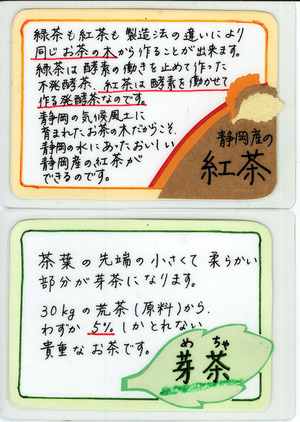 緑茶も紅茶も製造法の違いにより
同じお茶の木から作ることが出来ます。
緑茶は酵素の働きを止めて作った
不発酵茶、紅茶は酵素を働かせて
作る発酵茶なのです。
静岡の気候風土に
育まれたお茶の木だからこそ、
静岡の水にあったおいしい
静岡産の紅茶が
できるのです。
静岡産の
紅茶
茶葉の先端の小さくて柔らかい
部分が芽茶になります。
30kgの荒茶(原料)から、
わずか5%しかとれない
貴重なお茶です。
め ちゃ
芽茶